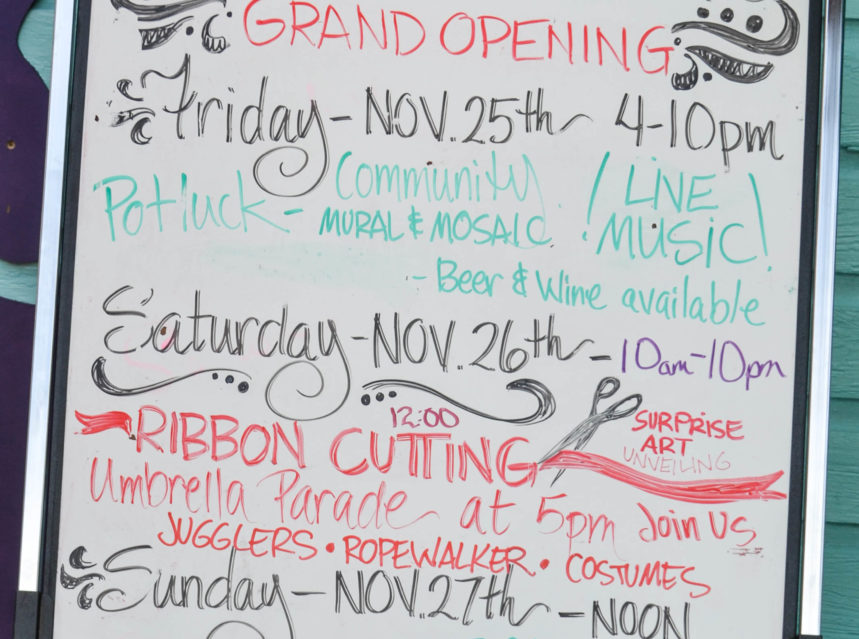 GRAND OPENING
Friday - NOV. 25th 4-10pm
Potluck - Community MURAL & MOSAIC ! LIVE MUSIC!
- Beer & Wine available
Saturday - NOV. 26th - 10am-10pm
12:00
RIBBON CUTTING SURPRISE ART UNVEILING
Umbrella Parade at 5pm Join Us
JUGGLERS • ROPEWALKER • COSTUMES
Sunday - NOV. 27th - NOON